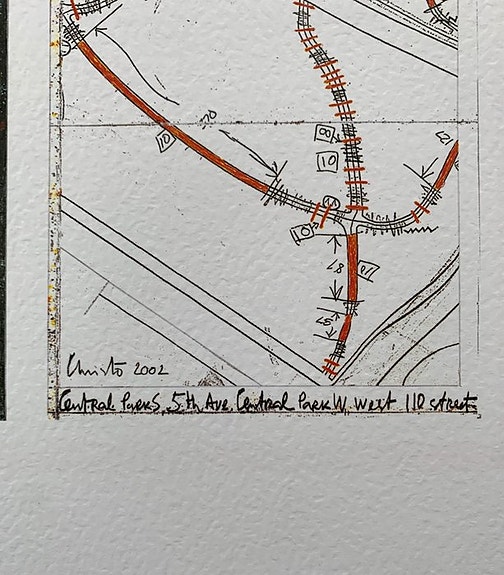 70
10
8
10
10
127
87
10
Christo 2002
Central Park S, 5th Ave, Central Park W. West 110 street